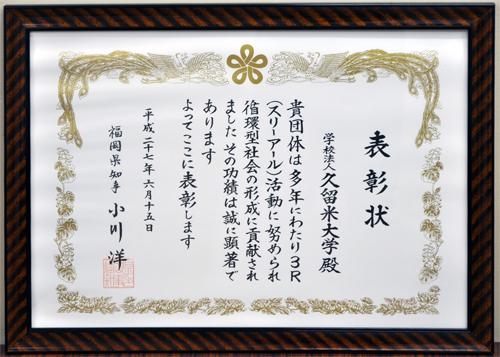 表彰状
学校法人 久留米大学 殿
貴団体は多年にわたり3R
(スリーアール)活動に努められ
循環型社会の形成に貢献され
ました その功績は誠に顕著で
あります
よってここに表彰します
平成二十七年六月十五日
福岡県知事 小川洋